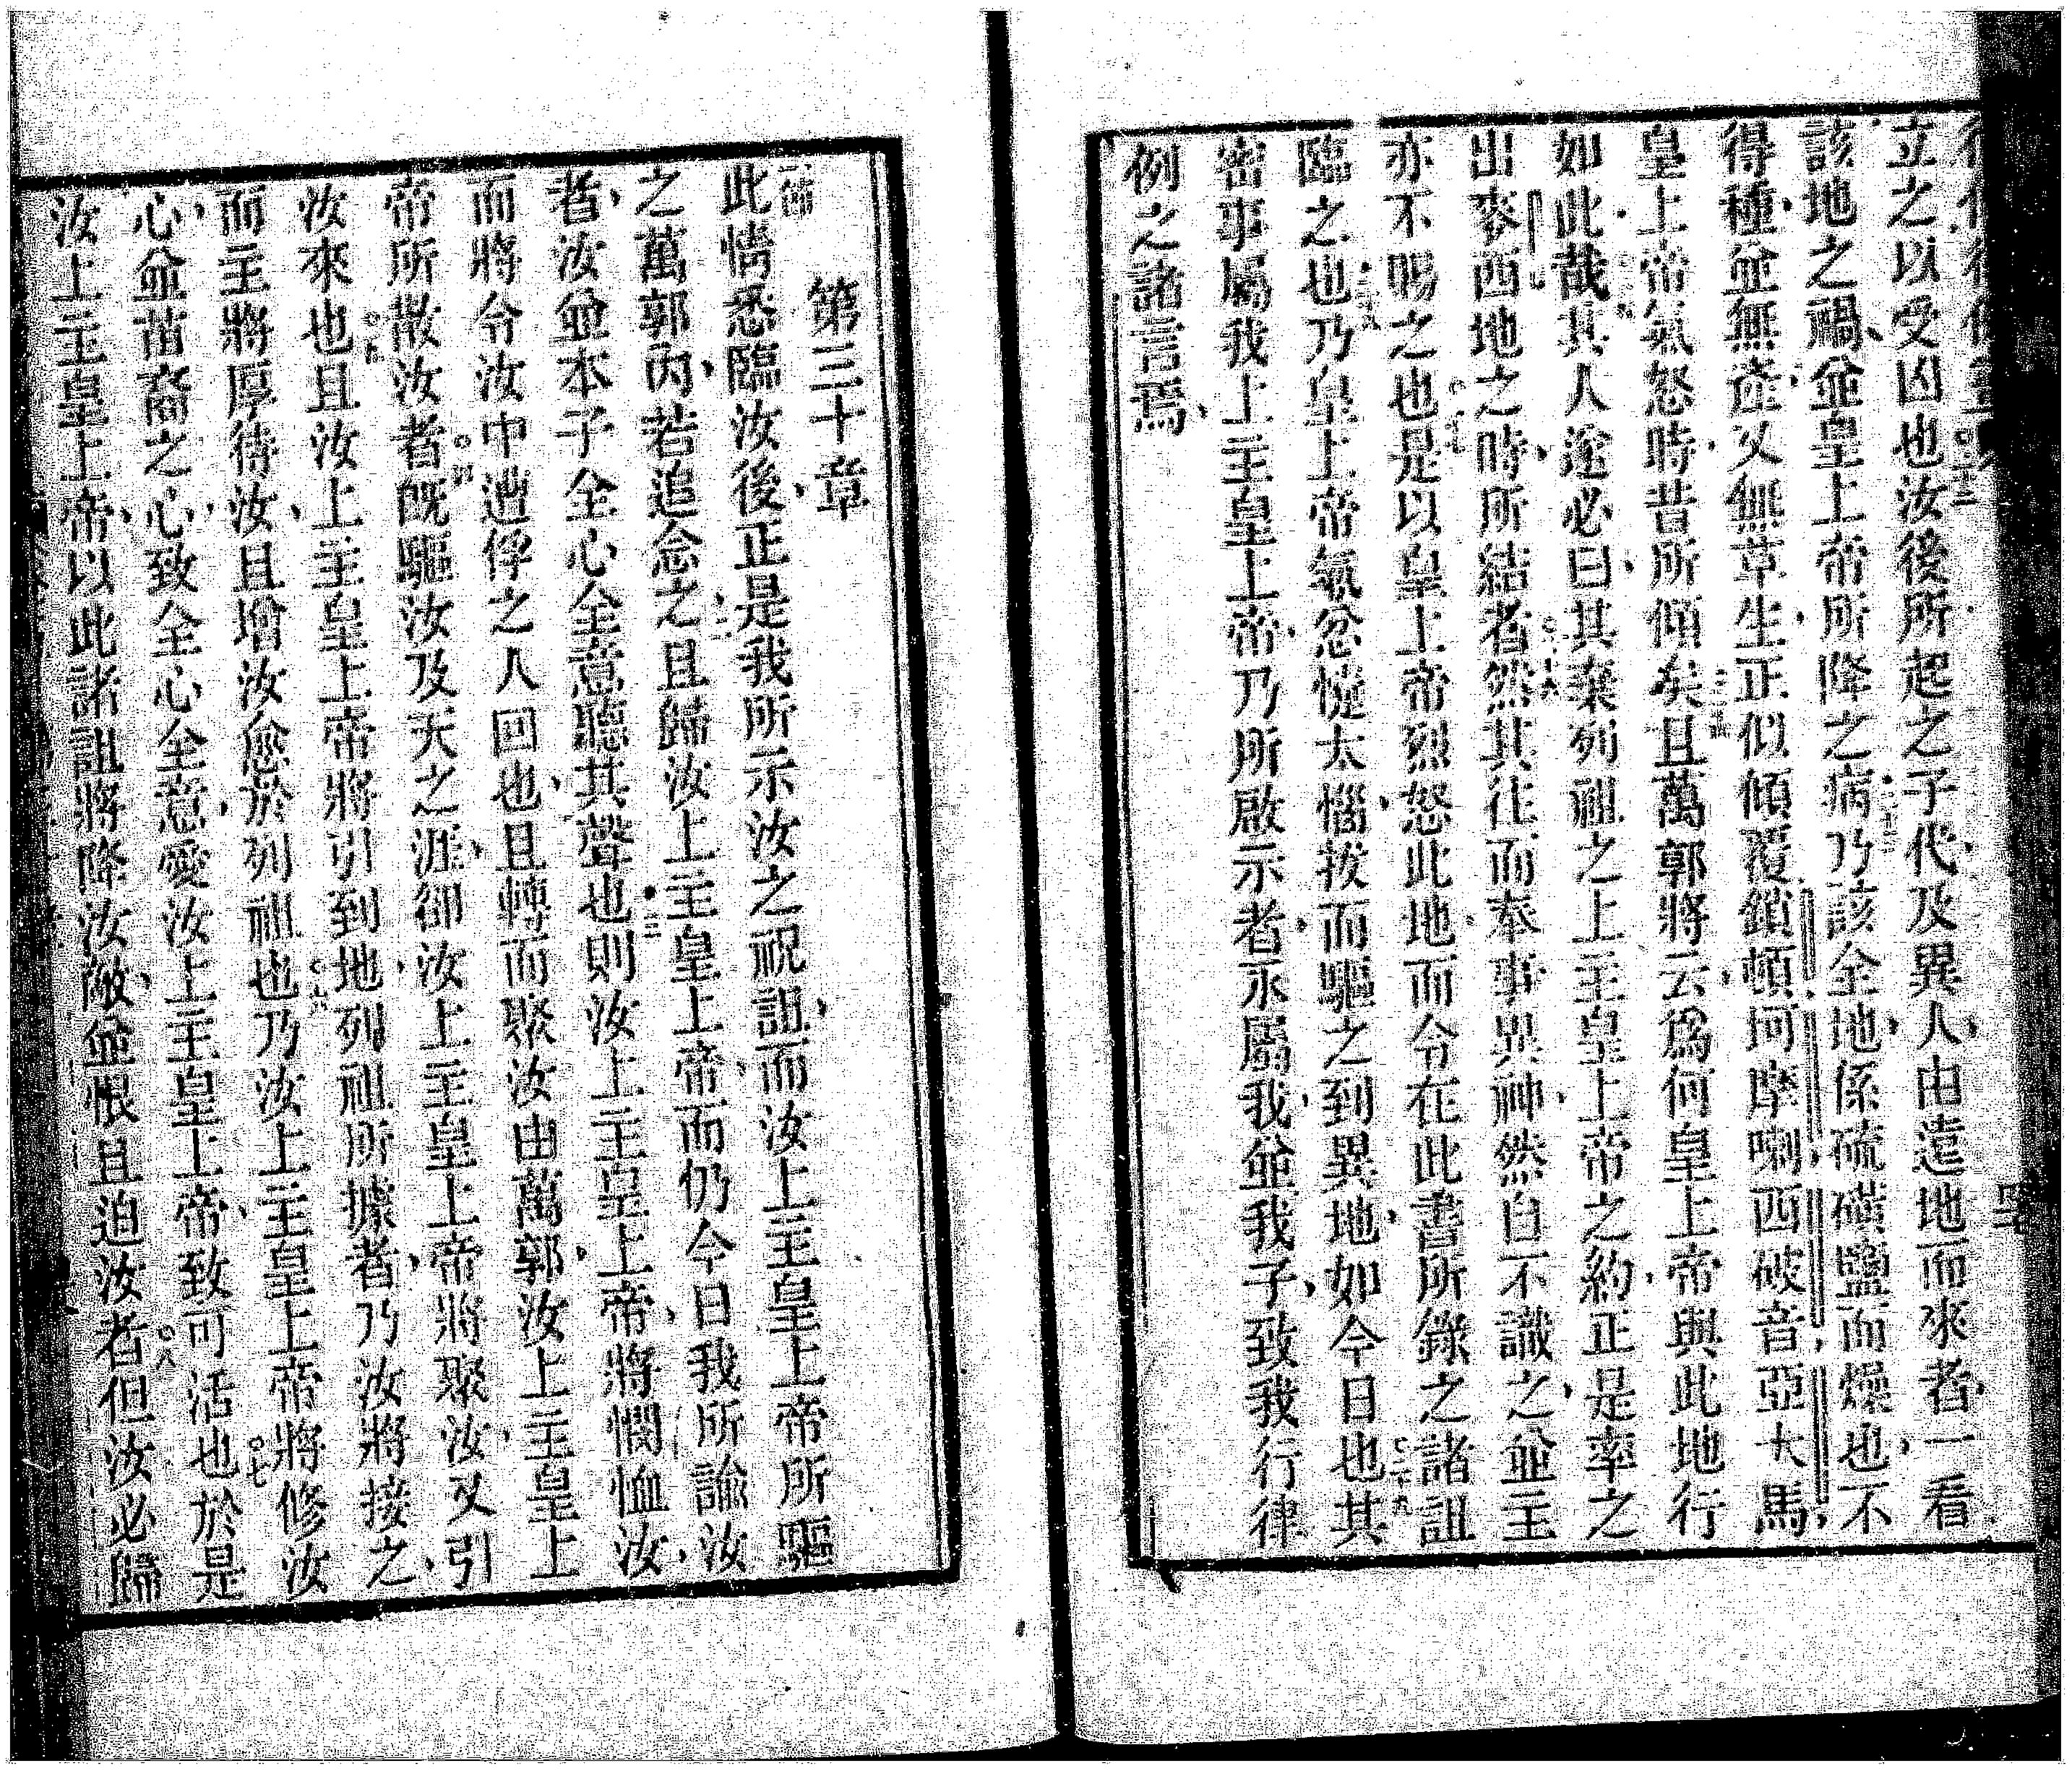 立之以受凶也汝後所起之子代及異人、由遠地而來者、一看
該地之禍、並皇上帝所降之病、○二十三乃該全地、係硫磺鹽而燥也、不
得種、並無產、又無草生、正似傾覆鎖頓坷摩喇西破音亞大馬、
皇上帝氣怒時、昔所傾矣○二十四且萬郭將云、爲何皇上帝與此地行
如此哉、其人○二十五遂必曰、其棄列祖之上主皇上帝之約、正是率之
出麥西地之時、所結者○二十六然其往而奉事異神、然自不識之、並主
亦不賜之也○二十七是以皇上帝烈怒此地、而令在此書所錄之諸詛
臨之也○二十八乃皇上帝氣忿憷太惱、拔而驅之到異地、如今日也○二十九其
密事屬我上主皇上帝、乃所啟示者、永屬我、並我子、致我行律
例之諸言焉、
第三十章
一節此情悉臨汝後、正是我所示汝之祝詛、而汝上主皇上帝所驅
之萬郭內、若追念之○二且歸汝上主皇上帝、而仍今日我所諭汝
者、汝並本子全心全意聽其聲也○三則汝上主皇上帝、將憫恤汝、
而將令汝中遭俘之人回也、且轉而聚汝由萬郭、汝上主皇上
帝所散汝者○四旣驅汝及天之涯、卻汝上主皇上帝將聚汝、又引
汝來也○五且汝上主皇上帝將引到地、列祖所據者、乃汝將接之、
而主將厚待汝、且增汝愈於列祖也○六乃汝上主皇上帝將修汝
心、並苗裔之心、致全心全意、愛汝上主皇上帝、致可活也○七於是
汝上主皇上帝、以此諸詛將降汝敵、並恨且迫汝者○八但汝必歸